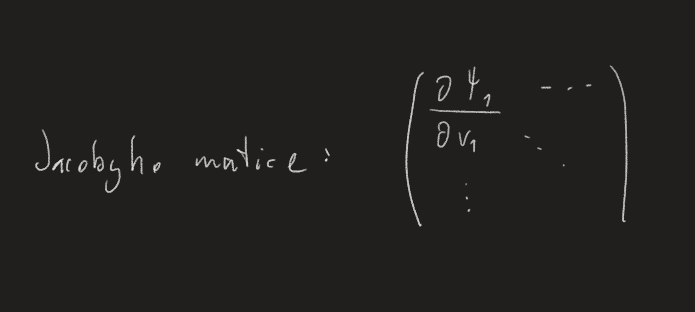 Jacobyho matice: ( ∂ψ₁/∂v₁ ... ⋱ ⋮ )